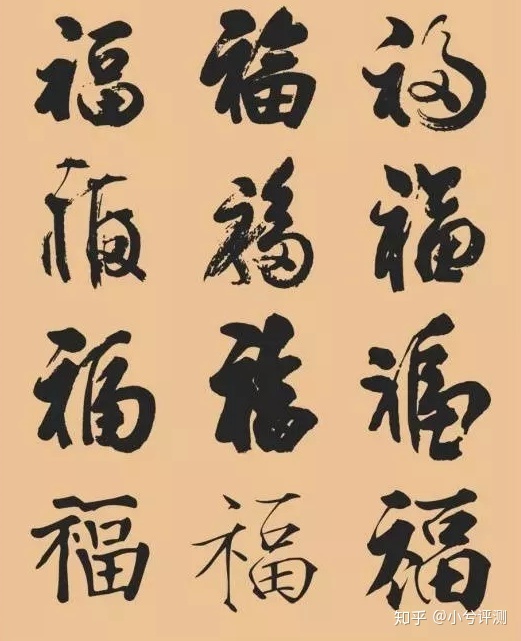 福 福 福
福 福 福
福 福 福
福 福 福
知乎 @小兮评测